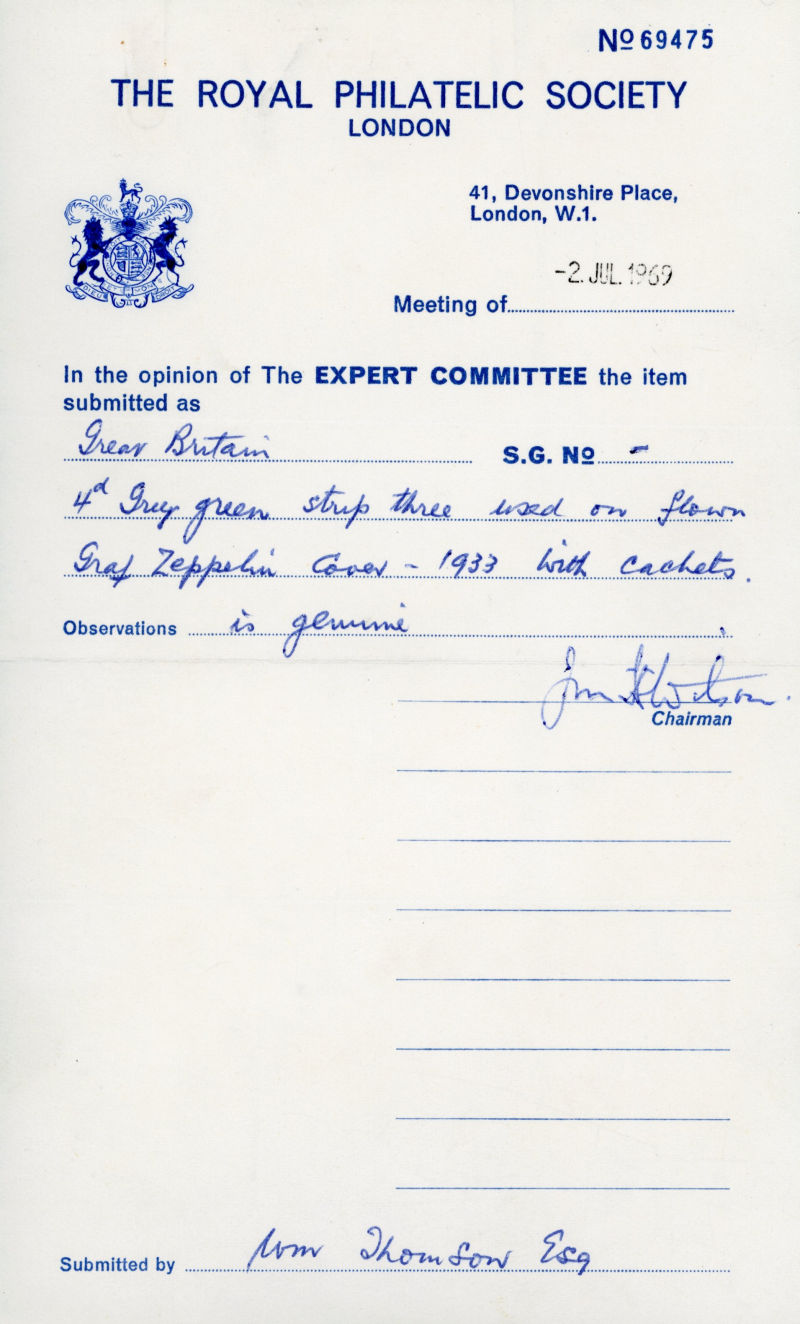 Nº 69475
THE ROYAL PHILATELIC SOCIETY
LONDON
41, Devonshire Place,
London, W.1.
-2. JUL. 1969
Meeting of
In the opinion of The EXPERT COMMITTEE the item
submitted as
Great Britain S.G. Nº -
4d Grey green strip three used on flown
Graf Zeppelin Cover - 1933 with cachets.
Observations is genuine
Chairman
Submitted by Wm Thomson Esq